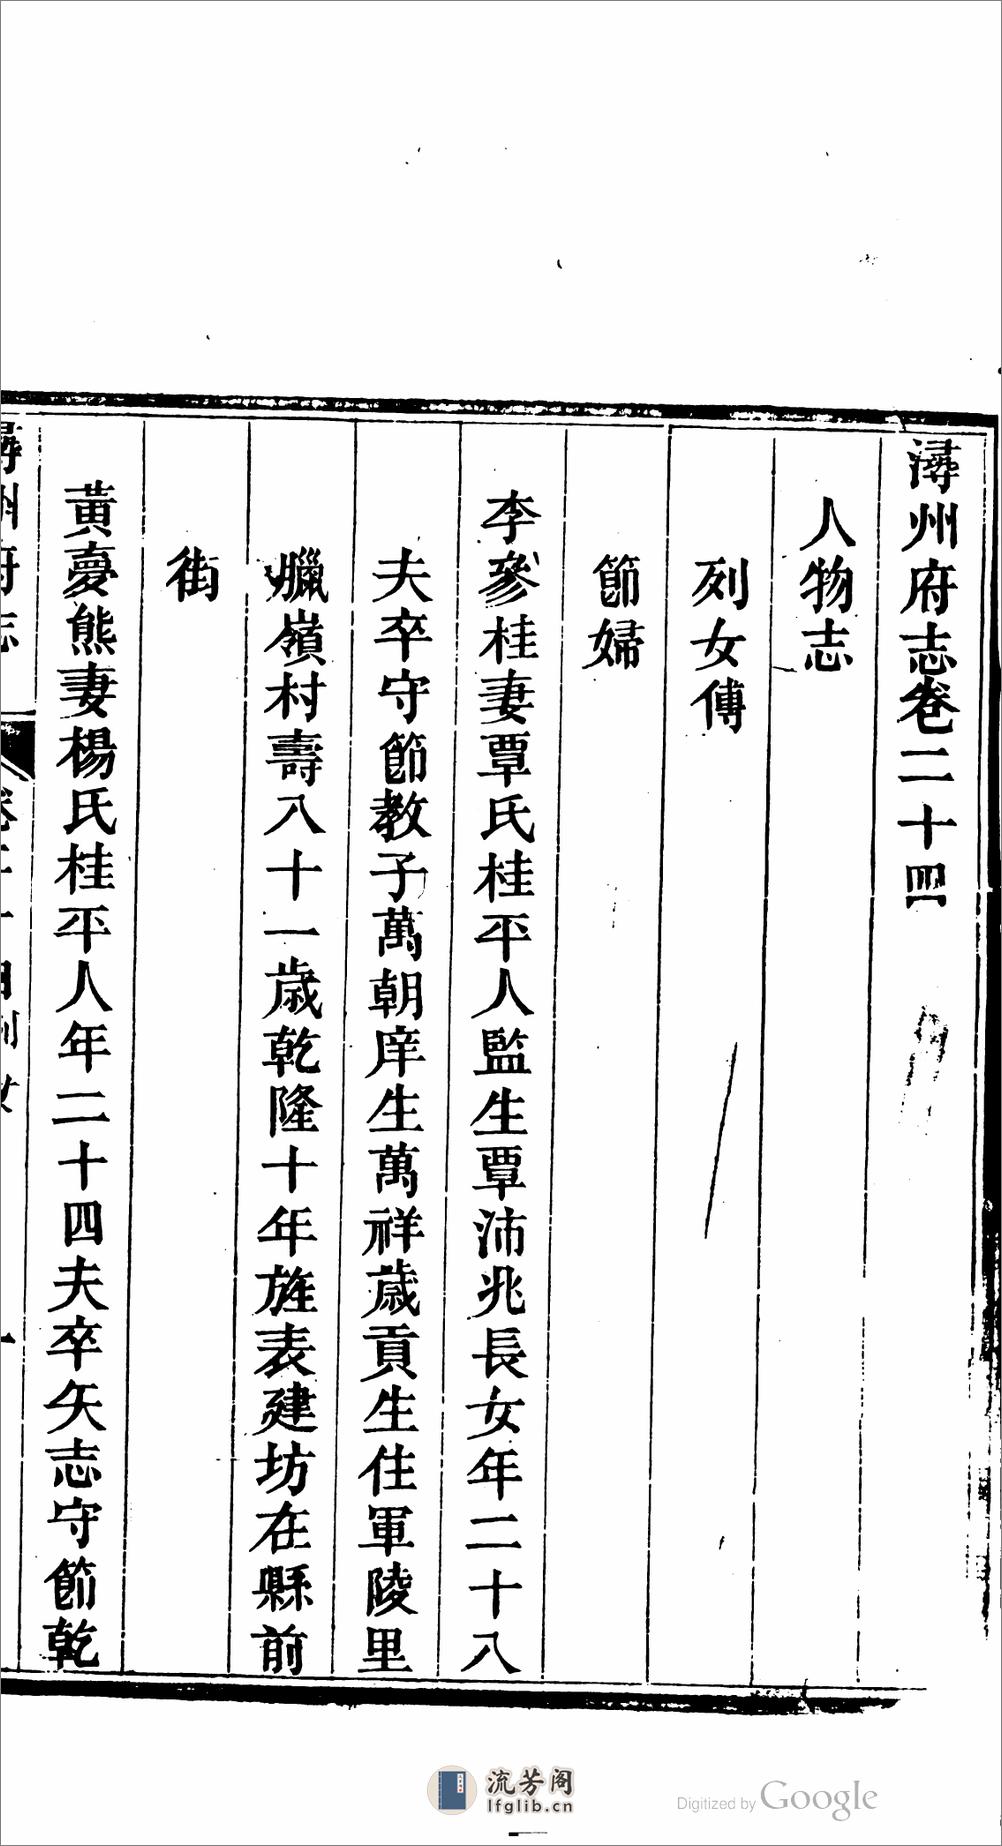 潯州府志卷二十四
人物志
列女傳
節婦
李參桂妻覃氏桂平人監生覃沛兆長女年二十八
夫卒守節教子萬朝庠生萬祥歲貢生住軍陵里
臘嶺村壽八十一歲乾隆十年旌表建坊在縣前
街
黃夢熊妻楊氏桂平人年二十四夫卒矢志守節乾
潯州府志
卷二十四列女
一
流芳阁
lfglib.cn
Digitized by Google